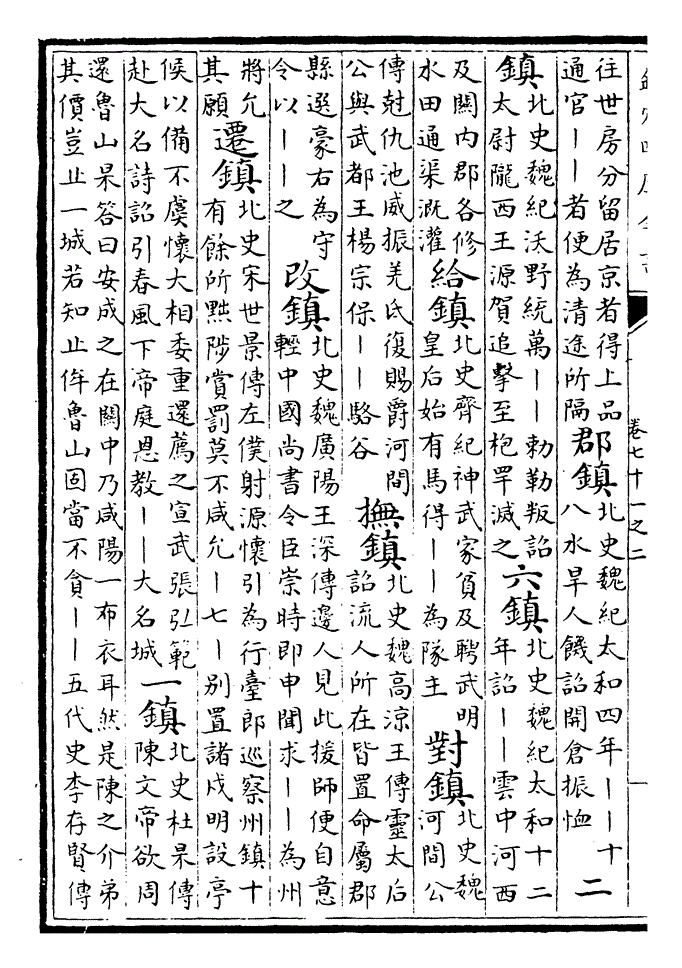 卷七十一之二
往世房分留居京者得上品
通官一一者便為清途所隔
郡鎮
北史魏紀太和四年一一十
八水旱人饑詔開倉振恤
二
鎮
北史魏紀沃野統萬一一勅勒叛詔
太尉隴西王源賀追擊至枹罕滅之
六鎮
北史魏紀太和十二
年詔一一雲中河西
及關内郡各修
水田通渠溉灌
給鎮
北史齊紀神武家貧及聘武明
皇后始有馬得一一為隊主
對鎮
北史魏
河間公
傳尅仇池威振羌氐復賜爵河間
公與武都王楊宗保一一駱谷
撫鎮
北史魏高涼王傳靈太后
詔流人所在皆置命屬郡
縣選豪右為守
令以一一之
改鎮
北史魏廣陽王深傳邊人見此援師便自意
輕中國尚書令臣崇時即申聞求一一為州
將允
其願
遷鎮
北史宋世景傳左僕射源懷引為行臺郎巡察州鎮十
有餘所黜陟賞罰莫不咸允一七一別置諸戍明設亭
候以備不虞懷大相委重還薦之宣武張弘範
赴大名詩詔引春風下帝庭恩教一一大名城
一鎮
北史杜杲傳
陳文帝欲周
還魯山杲答曰安成之在關中乃咸陽一布衣耳然是陳之介弟
其價豈止一城若知止侔魯山固當不貪一一五代史李存賢傳